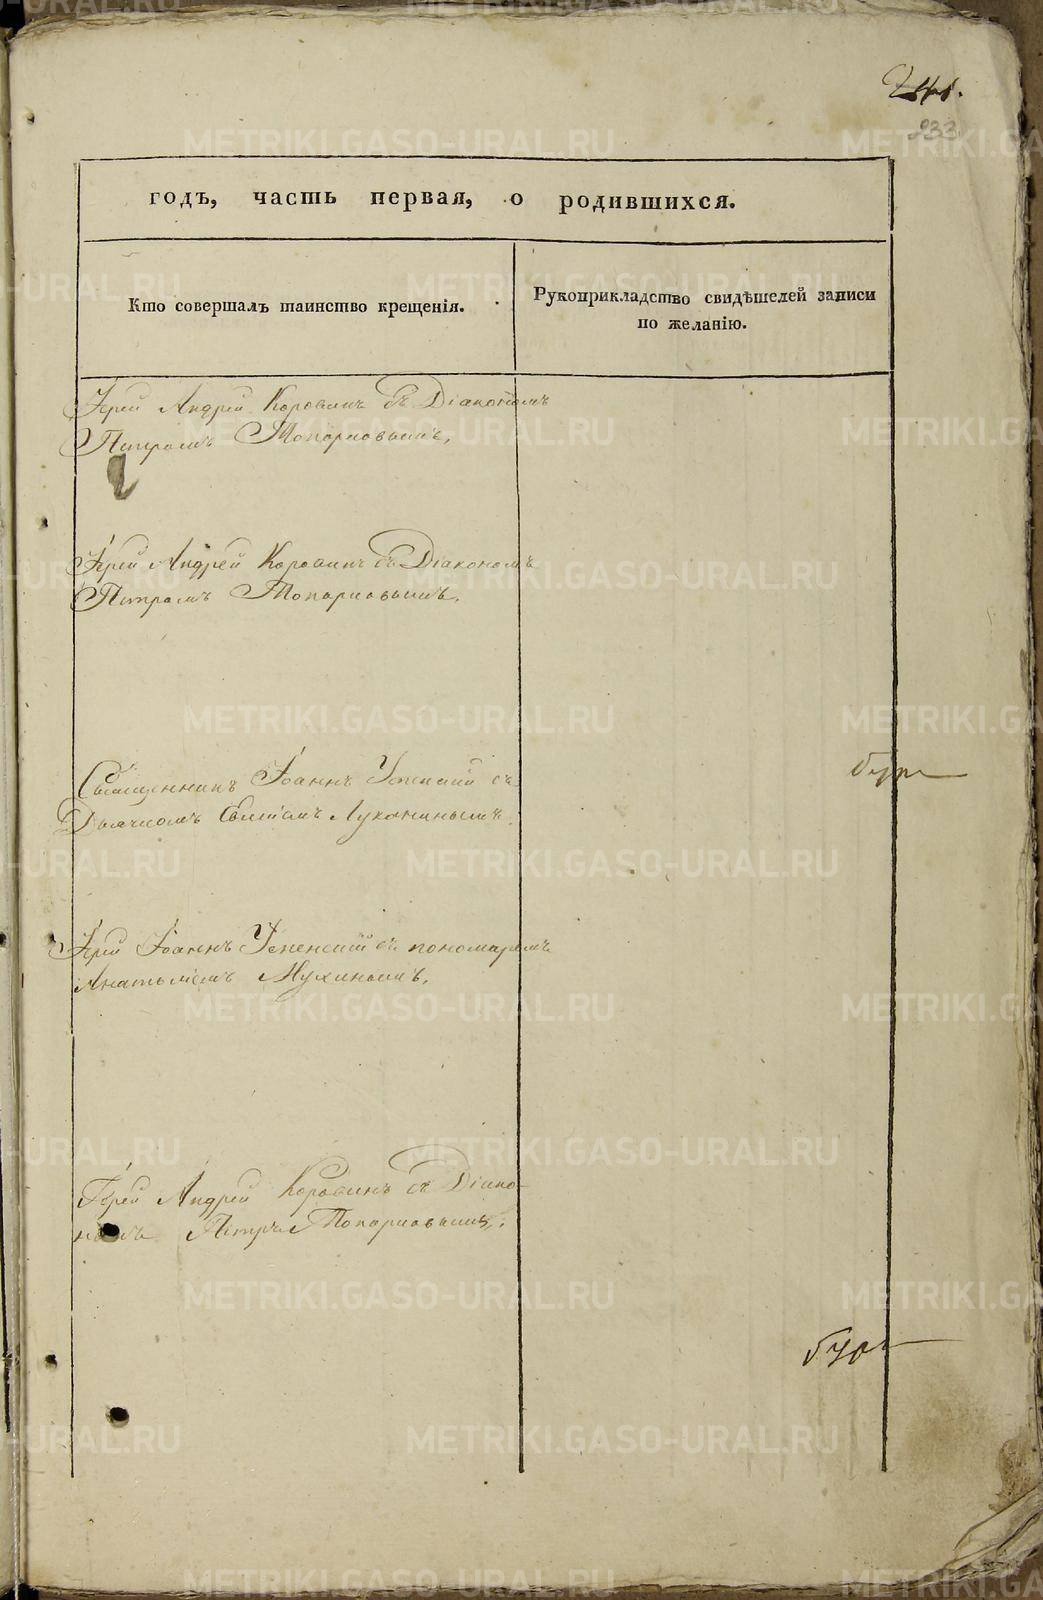 241.
233
годъ, часть первая, о родившихся.
Кто совершалъ таинство крещенія.
Рукоприкладство свидѣтелей записи
по желанію.
Іерей Андрей Коровинъ съ Діакономъ
Петромъ Топорковымъ.
Іерей Андрей Коровинъ съ Діакономъ
Петромъ Топорковымъ.
Священникъ Іоаннъ Успенскій съ
Дьячкомъ Лукинымъ
Іерей Іоаннъ Успенскій съ пономаремъ
Анатоліемъ Мухинымъ.
Іерей Андрей Коровинъ съ Діако-
номъ Петромъ Топорковымъ.
METRIKI.GASO-URAL.RU